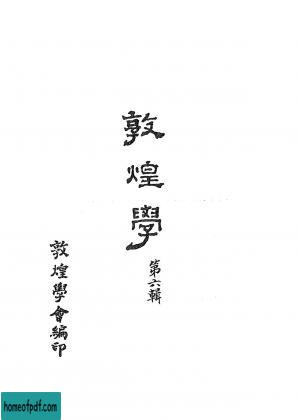 敦煌學
第六輯
敦煌學會編印
homeofpdf.com